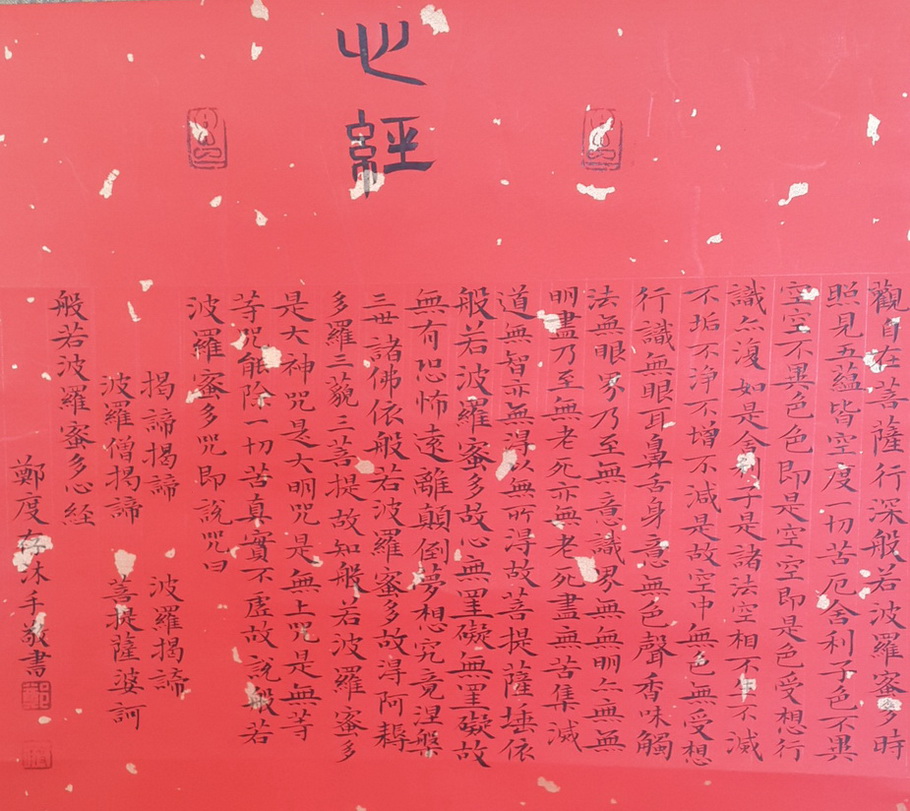 心經
觀自在菩薩行深般若波羅蜜多時
照見五蘊皆空度一切苦厄舍利子色不異
空空不異色色即是空空即是色受想行
識亦復如是舍利子是諸法空相不生不滅
不垢不净不增不減是故空中無色無受想
行識無眼耳鼻舌身意無色聲香味觸
法無眼界乃至無意識界無無明亦無無
明盡乃至無老死亦無老死盡無苦集滅
道無智亦無得以無所得故菩提薩埵依
般若波羅蜜多故心無罣礙無罣礙故
無有恐怖遠離顛倒夢想究竟涅槃
三世諸佛依般若波羅蜜多故得阿耨
多羅三藐三菩提故知般若波羅蜜多
是大神咒是大明咒是無上咒是無等
等咒能除一切苦真實不虛故說般若
波羅蜜多咒即說咒曰
揭諦揭諦 波羅揭諦
波羅僧揭諦 菩提薩婆訶
般若波羅蜜多心経
鄭度沐手敬書